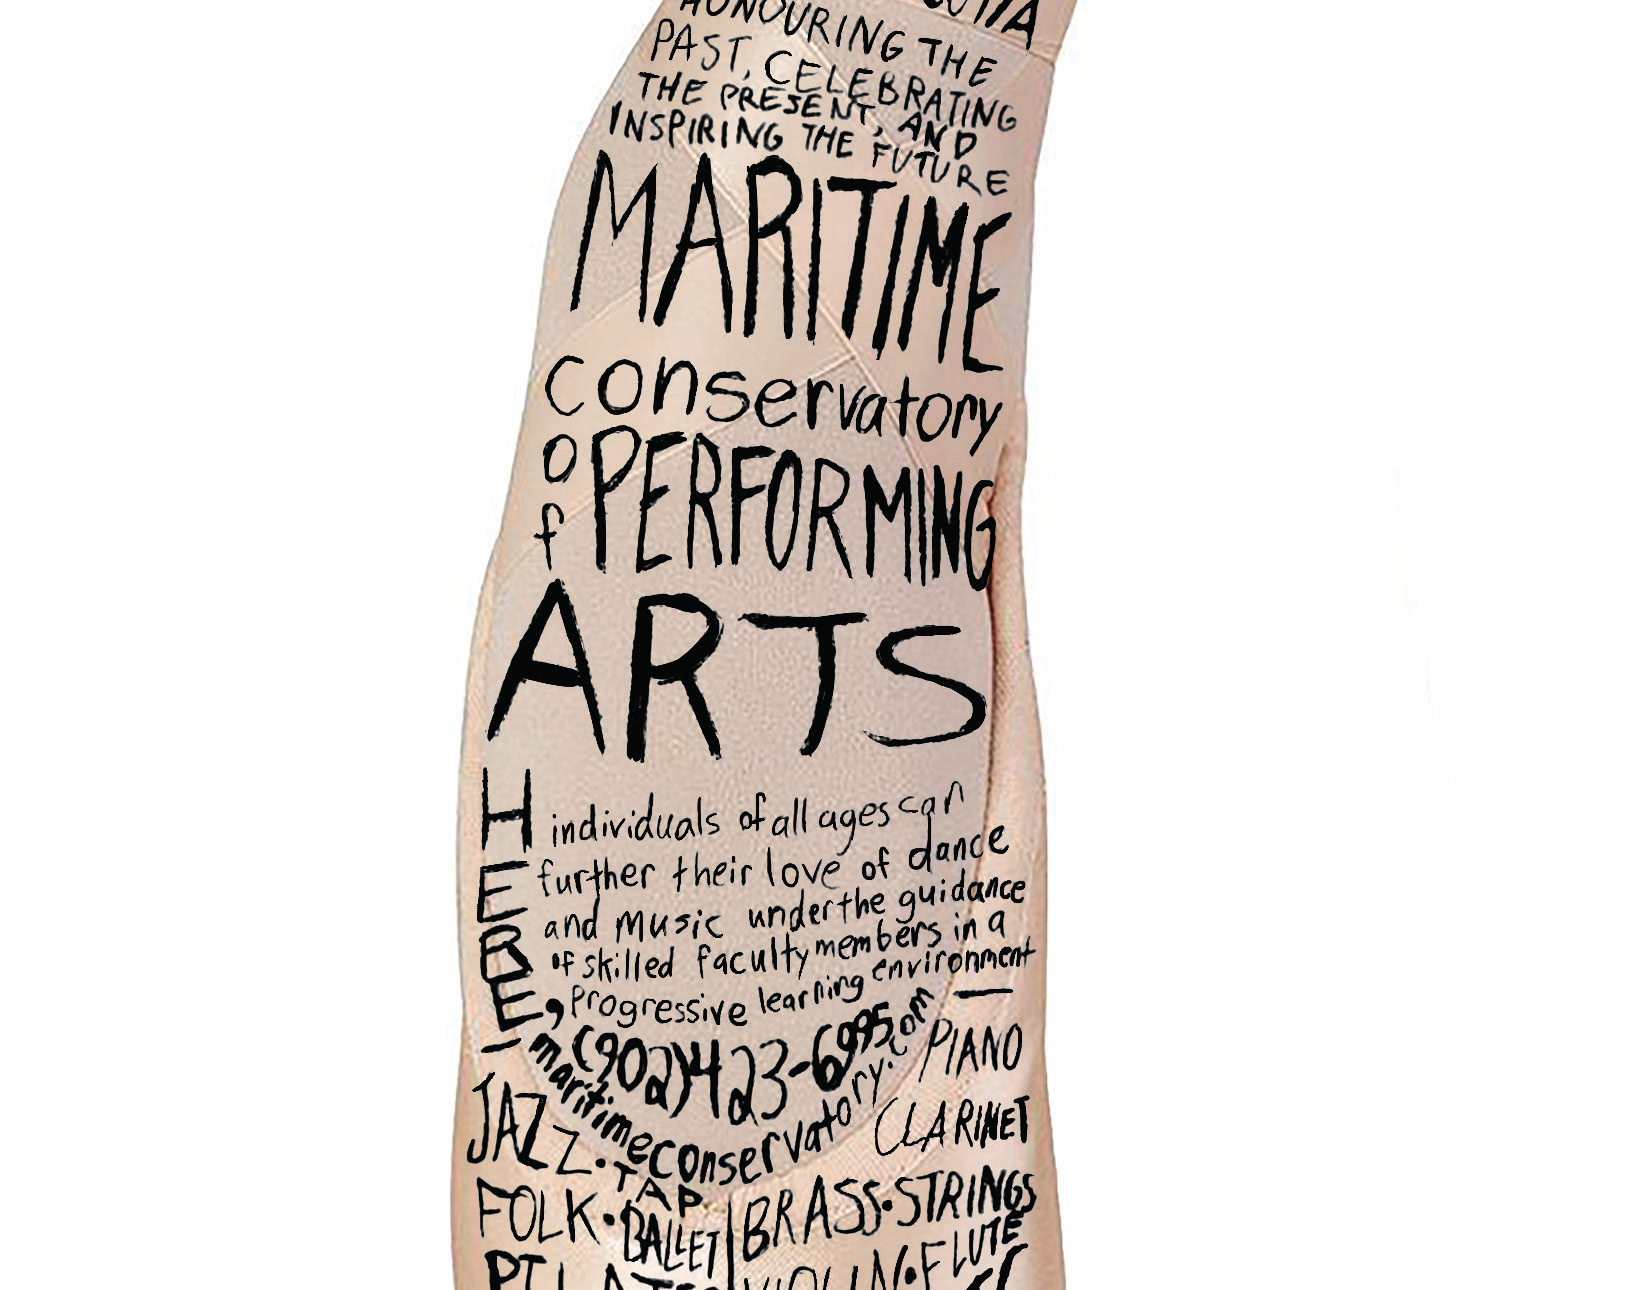 HONOURING THE
PAST, CELEBRATING
THE PRESENT, AND
INSPIRING THE FUTURE
MARITIME
conservatory
of PERFORMING
ARTS
HERE,
individuals of all ages can
further their love of dance
and music under the guidance
of skilled faculty members in a
progressive learning environment
(902)423-6995
maritimeconservatory.com
PIANO
JAZZ •
CLARINET
TAP
FOLK •
BALLET
BRASS • STRINGS
PILATES
VIOLIN • FLUTE